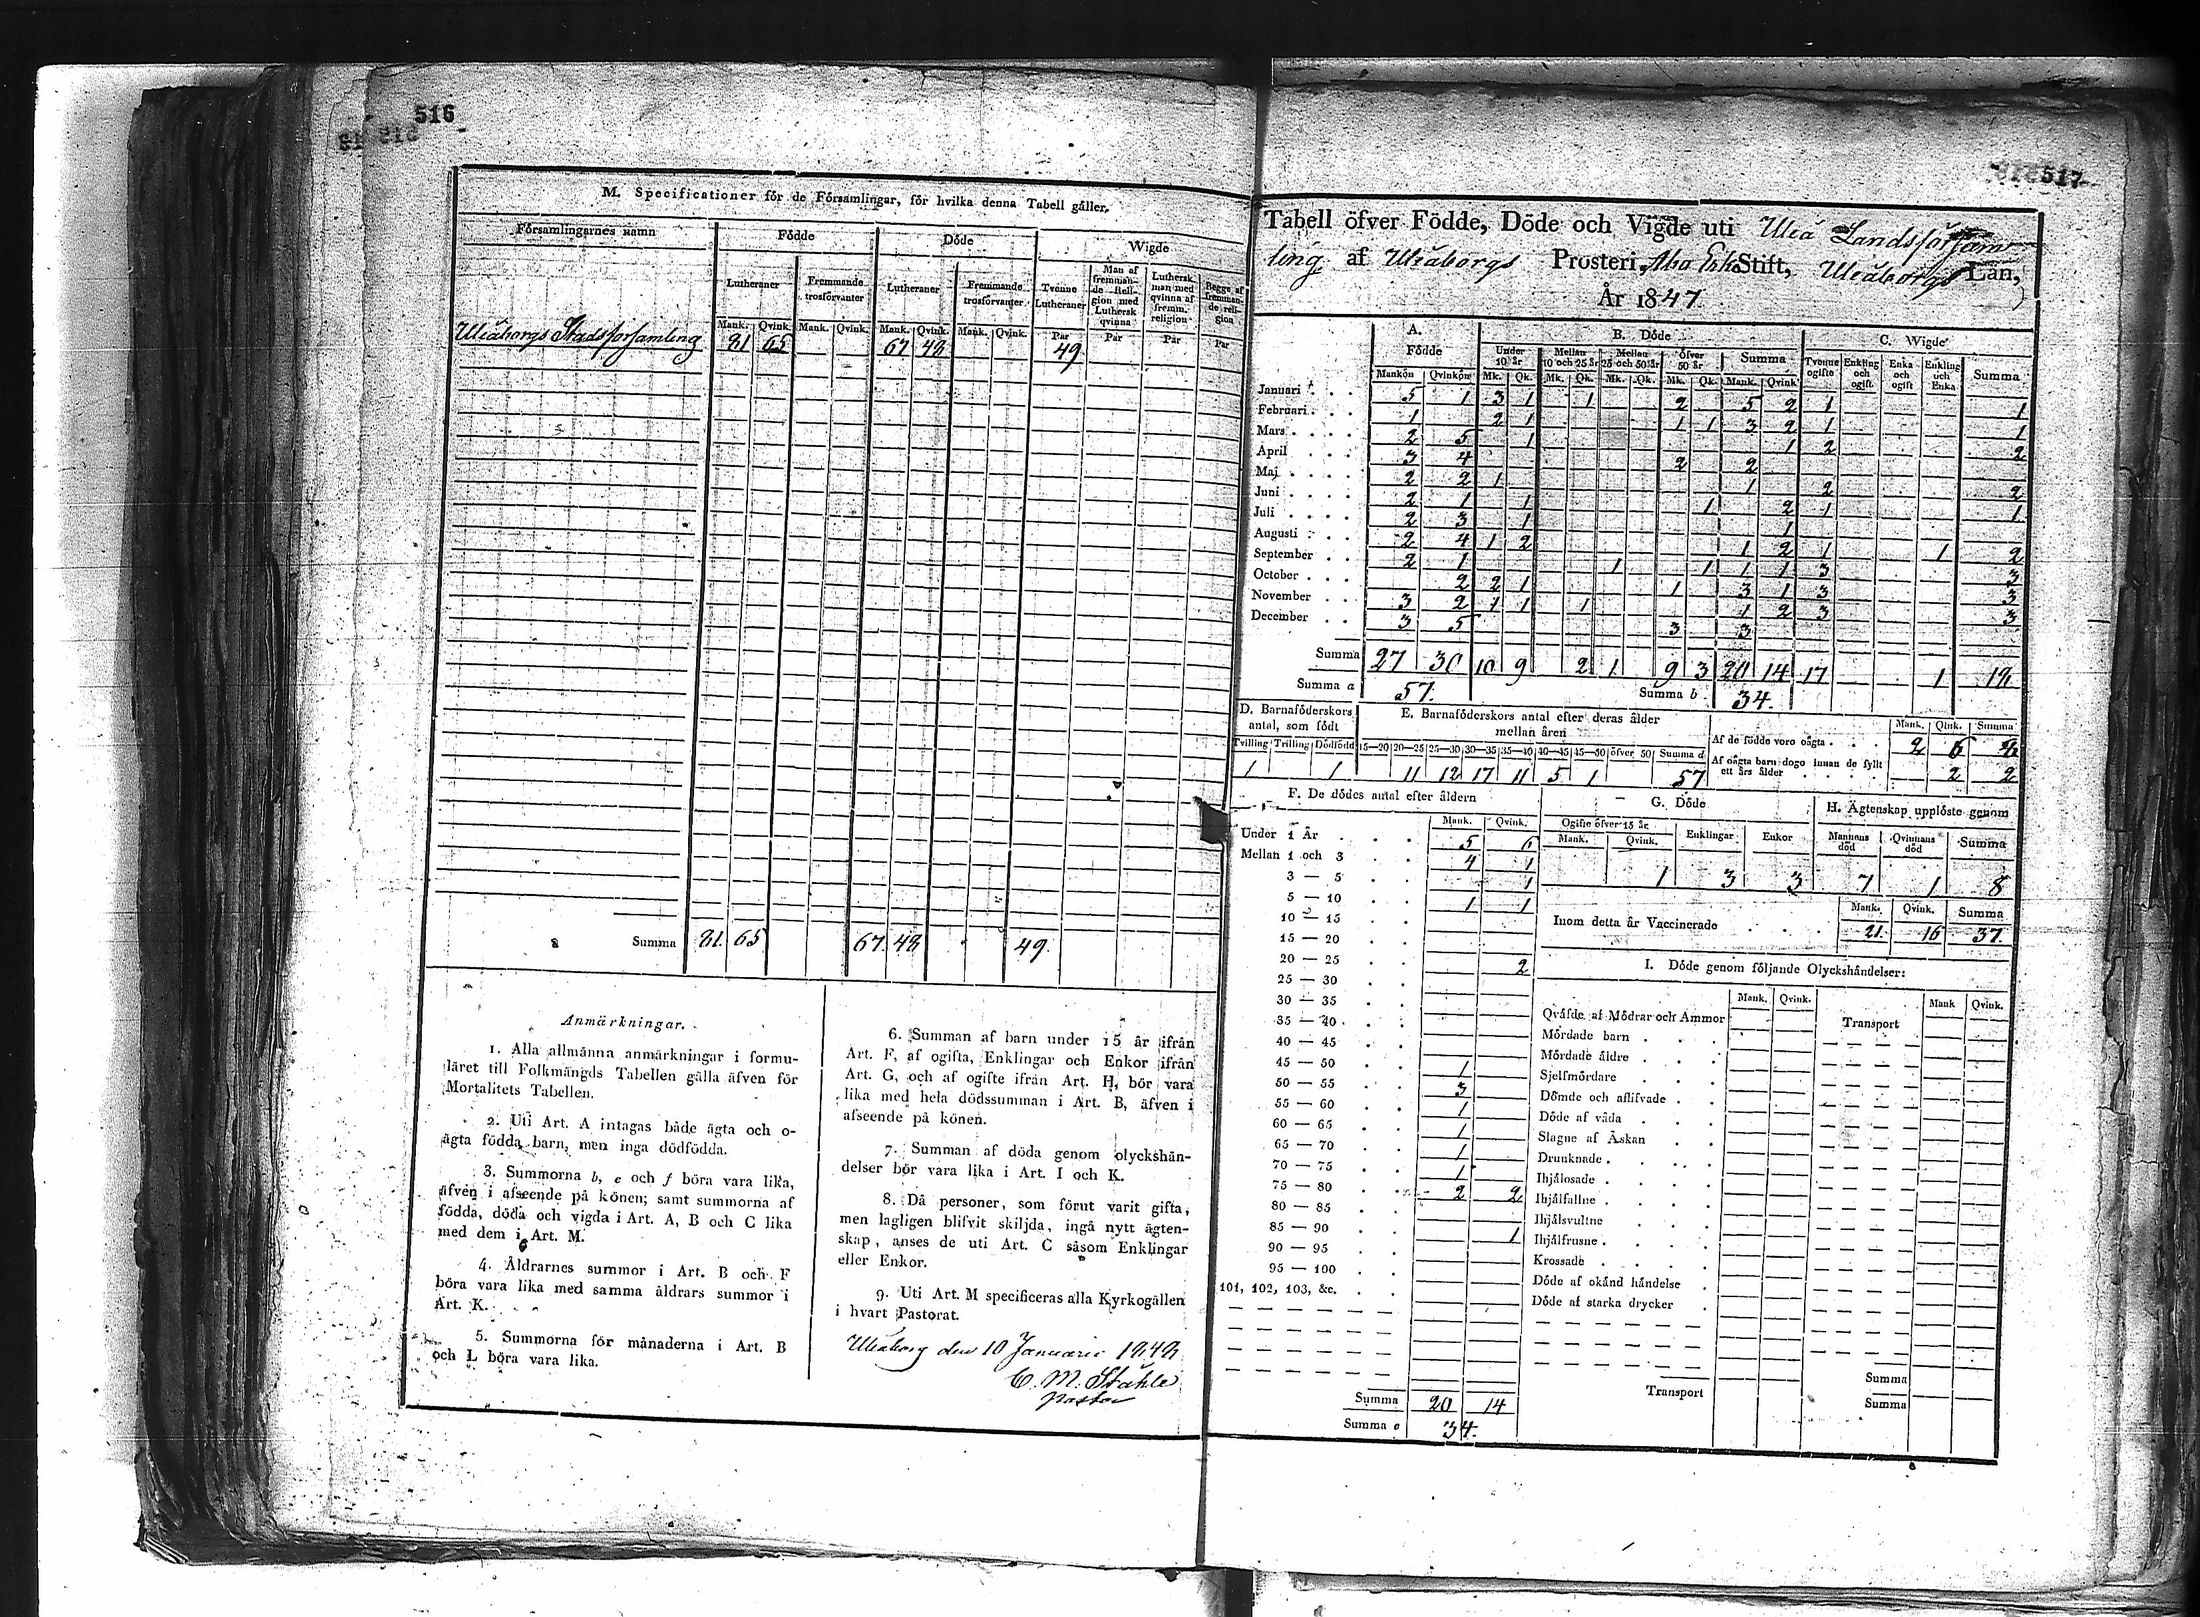 516
M. Specificationer för de Församlingar, för hvilka denna Tabell gäller.
Församlingarnes namn Födde Döde Wigde
Lutheraner Fremmande trosförvanter Lutheraner Fremmande trosförvanter Tvenne Lutheraner Man af fremmande Religion med Luthersk qvinna Luthersk man med qvinna af fremm. religion Begge af fremmande religion
Mank. Qvink. Mank. Qvink. Mank. Qvink. Mank. Qvink. Par Par Par Par
Uleåborgs Stadsförsamling 81 65 67 48 49
Summa 81. 65 67. 48 49.
Anmärkningar.
1. Alla allmänna anmärkningar i formu-
läret till Folkmängds Tabellen gälla äfven för
Mortalitets Tabellen.
2. Uti Art. A intagas både ägta och o-
ägta födda barn, men inga dödfödda.
3. Summorna b, e och f böra vara lika,
äfven i afseende på könen; samt summorna af
födda, döda och vigda i Art. A, B och C lika
med dem i Art. M.
4. Åldrarnes summor i Art. B och F
böra vara lika med samma åldrars summor i
Art. K.
5. Summorna för månaderna i Art. B
och L böra vara lika.
6. Summan af barn under 15 år ifrån
Art. F, af ogifta, Enklingar och Enkor ifrån
Art. G, och af ogifte ifrån Art. H, bör vara
lika med hela dödssumman i Art. B, äfven i
afseende på könen.
7. Summan af döda genom olyckshän-
delser bör vara lika i Art. I och K.
8. Då personer, som förut varit gifta,
men lagligen blifvit skiljda, ingå nytt ägten-
skap, anses de uti Art. C såsom Enklingar
eller Enkor.
9. Uti Art. M specificeras alla Kyrkogällen
i hvart Pastorat.
Uleåborg den 10 Januarii 1848
C. M. Ståhle
Pastor
517
Tabell öfver Födde, Döde och Vigde uti Uleå Landsförsam
ling af Uleåborgs Prosteri, Åbo Erke Stift, Uleåborgs Län,
År 1847
A. Födde B. Döde C. Wigde
Under 10 år Mellan 10 och 25 år Mellan 25 och 50 år öfver 50 år Summa Tvenne ogifte Enkling och ogift Enka och ogift Enkling och Enka Summa
Mankön Qvinkön Mk. Qk. Mk. Qk. Mk. Qk. Mk. Qk. Mank. Qvink
Januari 5 1 3 1 1 2 5 2 1 1
Februari 1 2 1 1 1 3 2 1 1
Mars 2 5 1 1 2 2
April 3 4 2 2
Maj 2 2 1 1 2 2
Juni 2 1 1 1 2 1 1
Juli 2 3 1 1
Augusti 2 4 1 2 1 2 1 1 2
September 2 1 1 1 1 1 3 3
October 2 2 1 1 3 1 3 3
November 3 2 1 1 1 1 2 3 3
December 3 5 3 3
Summa 27 30 10 9 2 1 9 3 20 14 17 1 18
Summa a 57. Summa b 34.
D. Barnaföderskors antal, som födt
E. Barnaföderskors antal efter deras ålder mellan åren
Tvilling Trilling Dödfödd 15—20 20—25 25—30 30—35 35—40 40—45 45—50 öfver 50 Summa d
1 1 11 12 17 11 5 1 57
Mank. Qink. Summa
Af de födde voro oägta 2 6 8
Af oägta barn dogo innan de fyllt ett års ålder 2 2
F. De dödes antal efter åldern
Mank. Qvink.
Under 1 År 5 6
Mellan 1 och 3 4 1
3 — 5 1
5 — 10 1 1
10 — 15
15 — 20
20 — 25 2
25 — 30
30 — 35
35 — 40
40 — 45
45 — 50 1
50 — 55 3
55 — 60 1
60 — 65 1
65 — 70 1
70 — 75 1
75 — 80 2 2
80 — 85
85 — 90 1
90 — 95
95 — 100
101, 102, 103, &c.
Summa 20 14
Summa e 34.
G. Döde
Ogifte öfver 15 år Enklingar Enkor
Mank. Qvink.
1 3 3
H. Ägtenskap upplöste genom
Mannens död Qvinnans död Summa
7 1 8
Mank. Qvink. Summa
Inom detta år Vaccinerade 21. 16 37.
I. Döde genom följande Olyckshändelser:
Mank. Qvink. Mank Qvink.
Qväfde af Mödrar och Ammor Transport
Mördade barn
Mördade äldre
Sjelfmördare
Dömde och aflifvade
Döde af våda
Slagne af Åskan
Drunknade
Ihjälosade
Ihjälfallne
Ihjälsvultne
Ihjälfrusne
Krossade
Döde af okänd händelse
Döde af starka drycker
Summa
Transport Summa